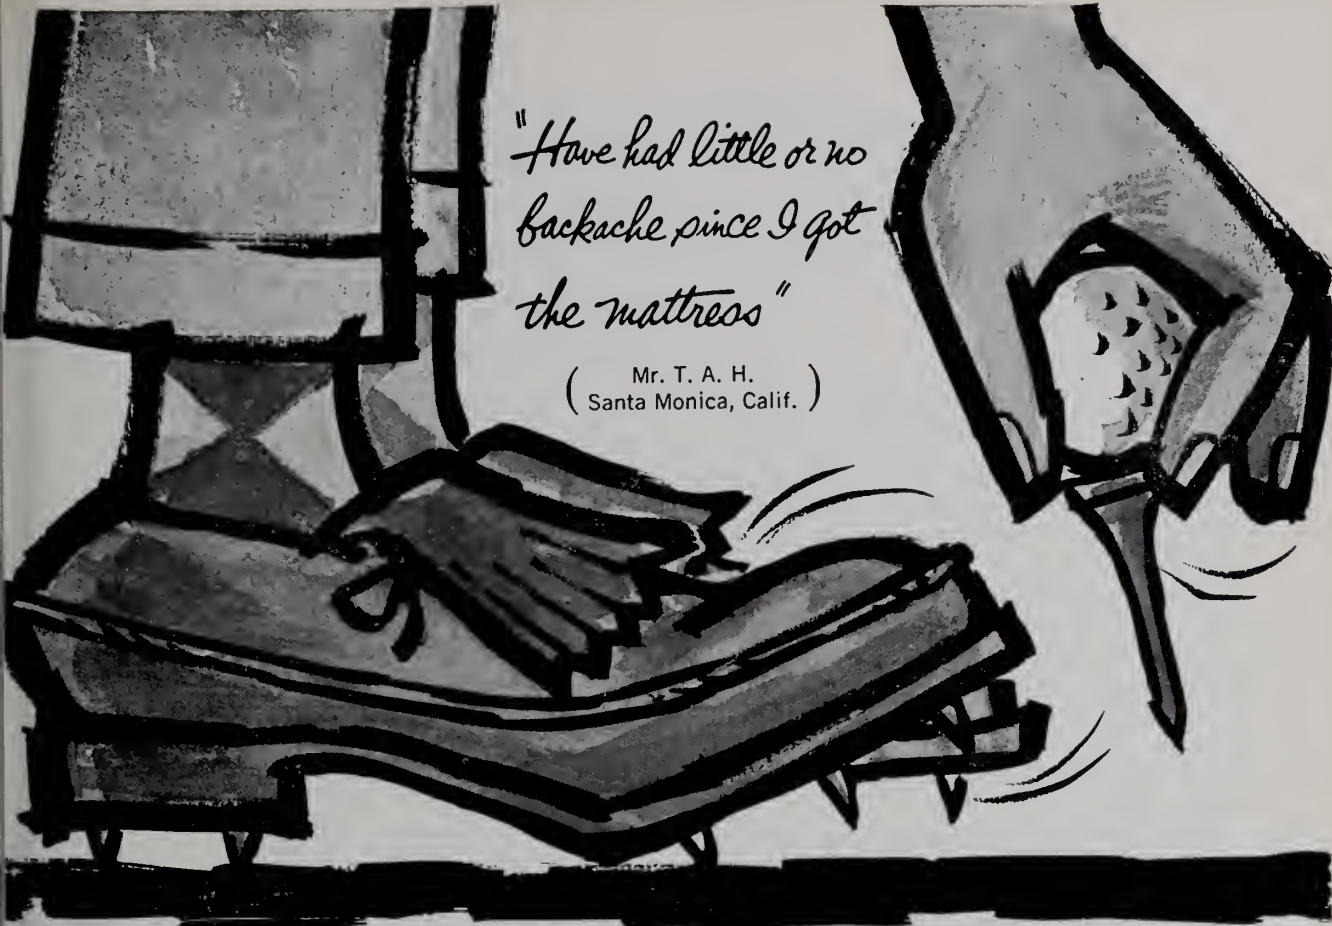 "Have had little or no
backache since I got
the mattress"
(Mr. T. A. H.
Santa Monica, Calif.)